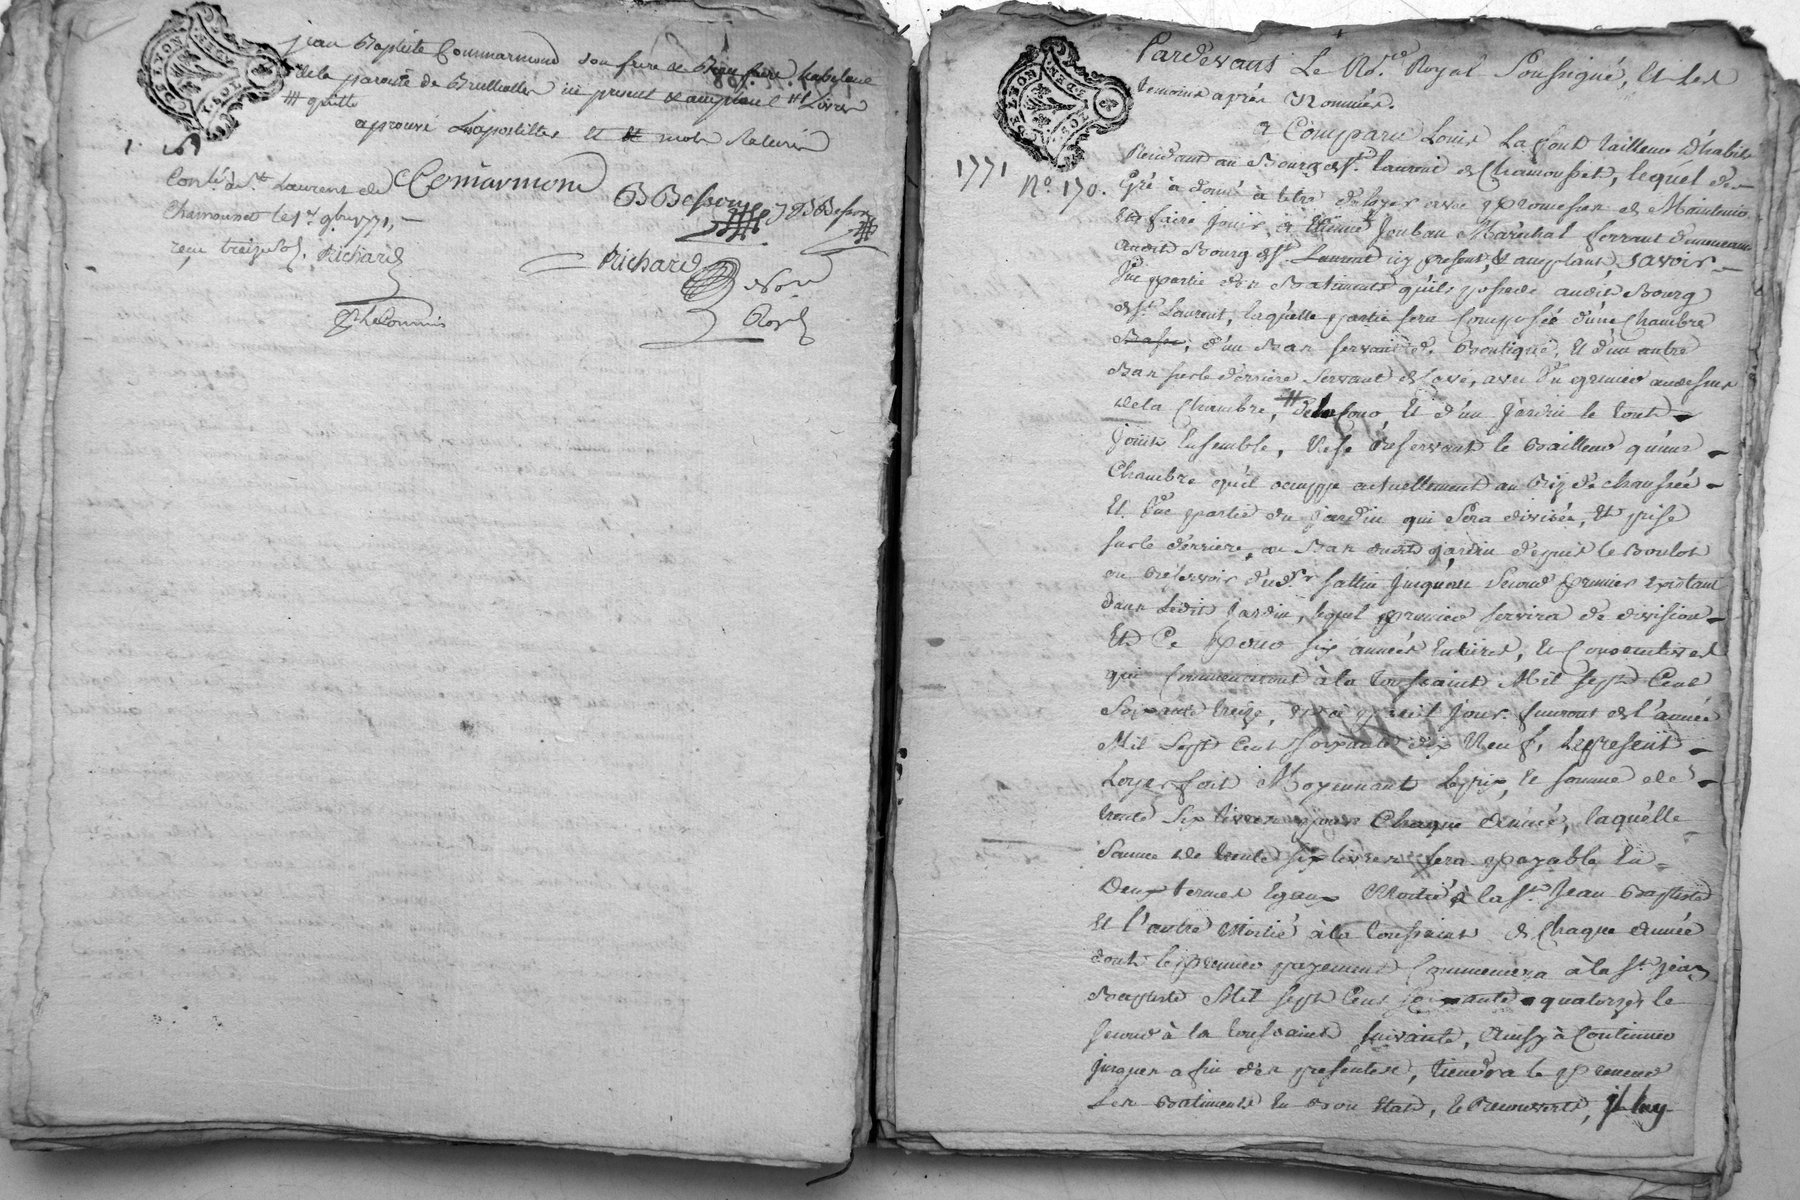 jean Baptiste Commarmond son frere de
de la paroisse de Brullioles icy present et acceptant
quitte
aprouvé les apostilles et mots
Con.lé à S.t Laurent de
Chamousset le 1.er 9bre 1771
reçu treize sols. Richard
Commarmond
BBesson
JBBesson
Richard
Not.
Royal
GENER. DE LYON
1771
N.o 170.
GENER. DE LYON
Pardevant Le No.re Royal Soussigné, Et les
temoins après Nommés.
a Comparu Louis La font tailleur d'habits
Residant au Bourg de S.t Laurent de Chamousset, lequel de
Gré à donné à titre de loyer avec promesse de Maintenir
Et faire jouir, à Etienne Jouban Maréchal ferrant demeurant
audit Bourg de S.t Laurent icy present, & acceptant, savoir
Une partie des Batiments qu'il possede audit Bourg
de S.t Laurent, laquelle partie sera Composée d'une Chambre
Basse, d'un Bas servant de Boutique, Et d'un autre
Bas sur le derriere servant de Cave, avec Un grenier au dessus
de la Chambre, de la Cour, Et d'un Jardin le tout
joint Ensemble, Se Reservant le Bailleur qu'une
Chambre qu'il occuppe actuellement au Rez de chaussée
Et Une partie du jardin qui Sera divisée, Et prise
sur le derriere, au Bas dudit jardin depuis le Boulot
ou Reservoir du S.r Jusqu'au Second prunier existant
dans Ledit Jardin, lequel prunier servira de division
Et Ce pour six années Entieres, Et Consecutives
qui Commenceront à la Toussaint Mil Sept Cent
Soixante treize, et à pareil Jour finiront de l'année
Mil Sept Cent Soixante dix Neuf, Le present
Loyer fait Moyennant le prix, Et somme de
trente Six livres pour Chaque Année, laquelle
Somme de trente six livres sera payable En
Deux termes Egaux Moitié à la S.t Jean Baptiste
Et l'autre Moitié à la Toussaint de Chaque Année
dont le premier payement Commencera à la S.t Jean
Baptiste Mil Sept Cent Soixante quatorze, le
Second à la Toussaint suivante, Ainsy à Continuer
jusques a fin des presentes, tiendra le preneur
Les Batiments En Bon Etat, & Recouverts, il luy